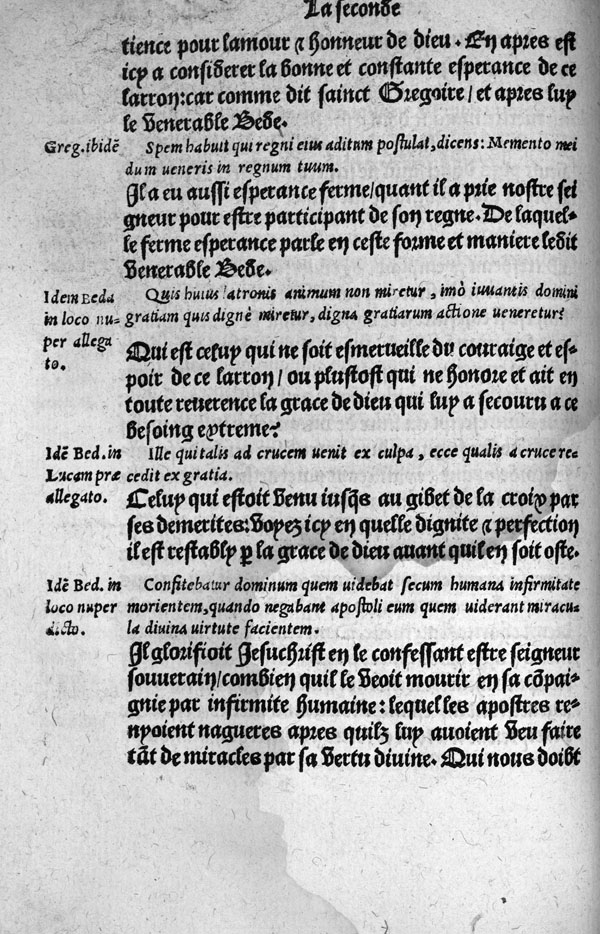 La seconde
tience pour lamour ⁊ honneur de dieu. En apres est
icy a considerer la bonne et constante esperance de ce
larron: car comme dit sainct Gregoire/ et apres luy
le Venerable Bede.
Greg. ibidē
Spem habuit qui regni eius aditum postulat, dicens: Memento mei
dum ueneris in regnum tuum.
Il a eu aussi esperance ferme/quant il a prie nostre sei
gneur pour estre participant de son regne. De laquel-
le ferme esperance parle en ceste forme et maniere ledit
Venerable Bede.
Idem Beda
in loco nu-
per allega
to.
Quis huius latronis animum non miretur, imò iuuantis domini
gratiam quis dignè miretur, digna gratiarum actione ueneretur?
Qui est celuy qui ne soit esmerueille du couraige et es-
poir de ce larron/ ou plustost qui ne honore et ait en
toute reuerence la grace de dieu qui luy a secouru a ce
besoing extreme?
Idē Bed. in
Lucam præ
allegato.
Ille qui talis ad crucem uenit ex culpa, ecce qualis a cruce re-
cedit ex gratia.
Celuy qui estoit Venu iusq̄s au gibet de la croix par
ses demerites: Voyez icy en quelle dignite ⁊ perfection
il est restably ꝑ la grace de dieu auant quil en soit oste.
Idē Bed. in
loco nuper
dicto.
Confitebatur dominum quem uidebat secum humana infirmitate
morientem, quando negabant apostoli eum quem uiderant miracu-
la diuina uirtute facientem.
Il glorifioit Jesuchrist en le confessant estre seigneur
souuerain/combien quil le Veoit mourir en sa cōpai-
gnie par infirmite humaine: lequel les apostres re-
nyoient nagueres apres quilz luy auoient Veu faire
tāt de miracles par sa Vertu diuine. Qui nous doibt